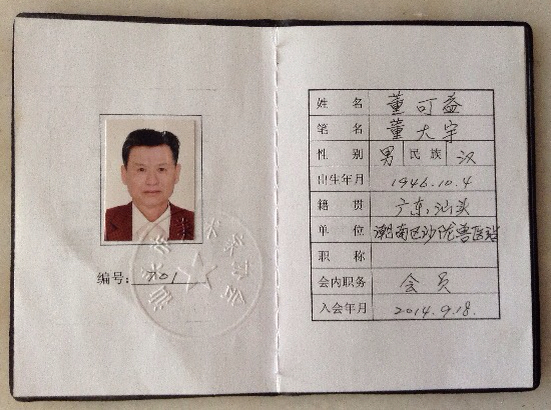 编号: 701
姓名 董可益
笔名 董大宇
性别 男 民族 汉
出生年月 1946.10.4
籍贯 广东汕头
单位 潮南区沙陇兽医站
职称
会内职务 会员
入会年月 2014.9.18.